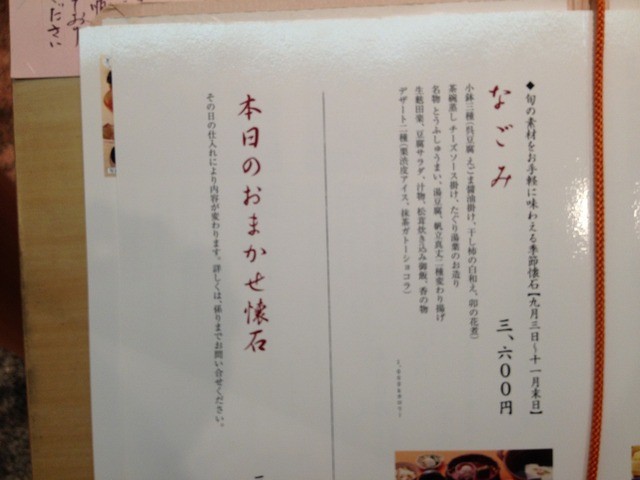 ◆旬の素材をお手軽に味わえる季節懐石【九月三日～十一月末日】
なごみ
三、六〇〇円
小鉢三種(呉豆腐 えごま醤油掛け、干し柿の白和え、卯の花煮)
茶碗蒸し チーズソース掛け、たぐり湯葉のお造り
名物 とうふしゅうまい、湯豆腐、帆立真丈二種変わり揚げ
生麩田楽、豆腐サラダ、汁物、松茸炊き込み御飯、香の物
デザート二種(栗渋皮アイス、抹茶ガトーショコラ)
本日のおまかせ懐石
その日の仕入れにより内容が変わります。詳しくは、係りまでお問い合せください。
ください